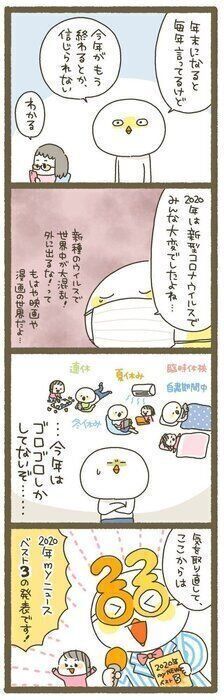 年末になると
毎年言ってるけど
今年がもう
終わるとか、
信じられない
わかる
2020年は
新型コロナウィルスで
みんな大変でしたよね…
新種のウィルスで
世界中が大混乱!
外に出るな!って
もはや映画や
漫画の世界だよ…
連休
夏休み
冬休み
臨時休校
自粛期間中
…今年は
ゴロゴロしか
してないぞ……
気を取り直して、
ここからは
2020年myニュース
ベスト3の発表です!
2020年
my NEWS
ベスト3